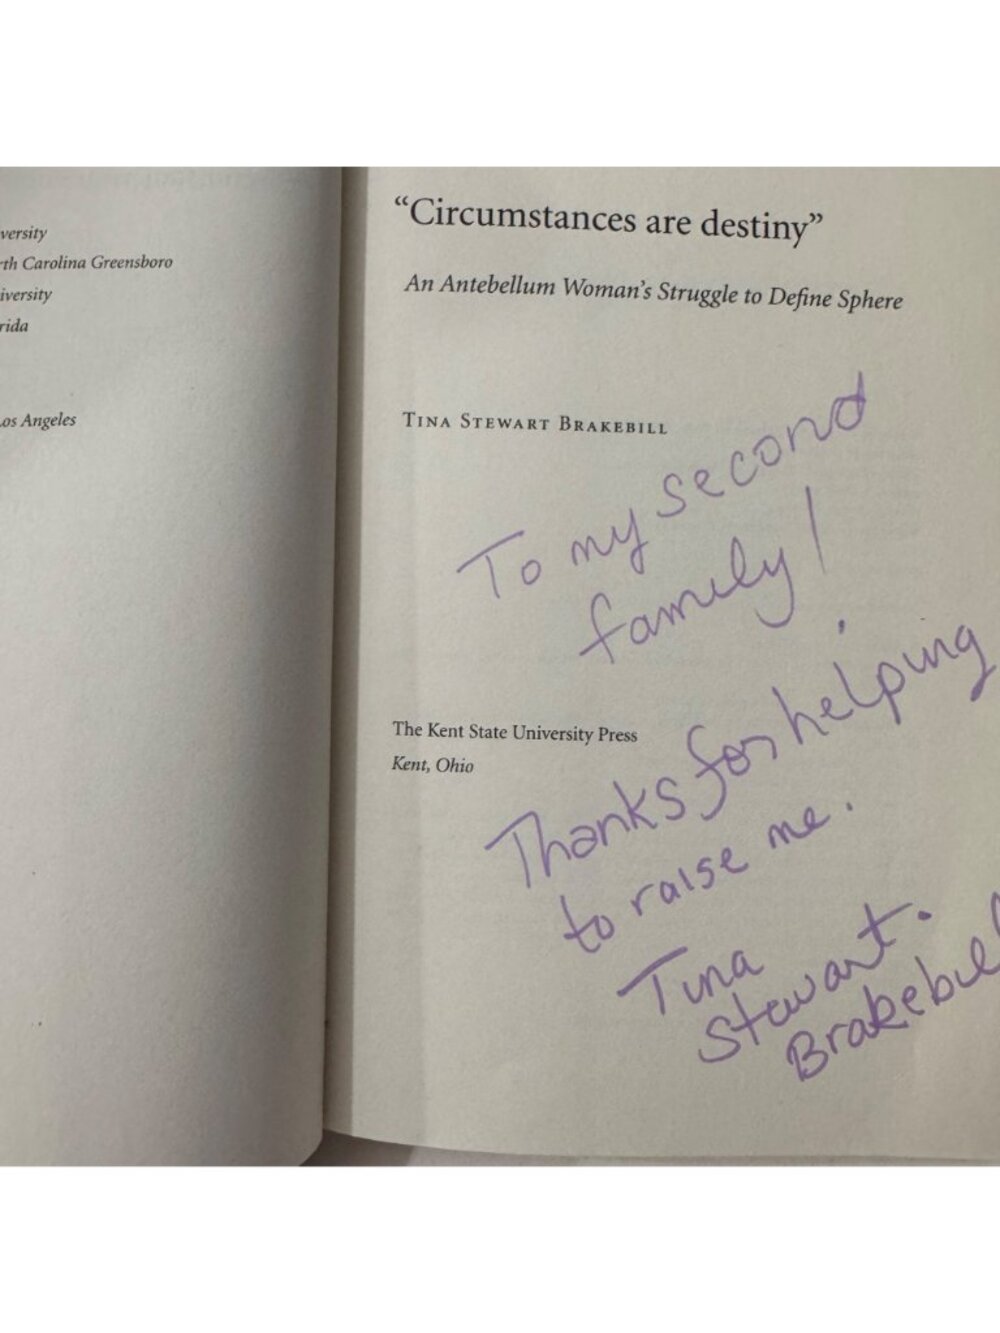 versity
rth Carolina Greensboro
iversity
rida
Los Angeles
“Circumstances are destiny”
An Antebellum Woman’s Struggle to Define Sphere
Tina Stewart Brakebill
The Kent State University Press
Kent, Ohio
To my second
family!
Thanks for helping
to raise me.
Tina
Stewart
Brakebill